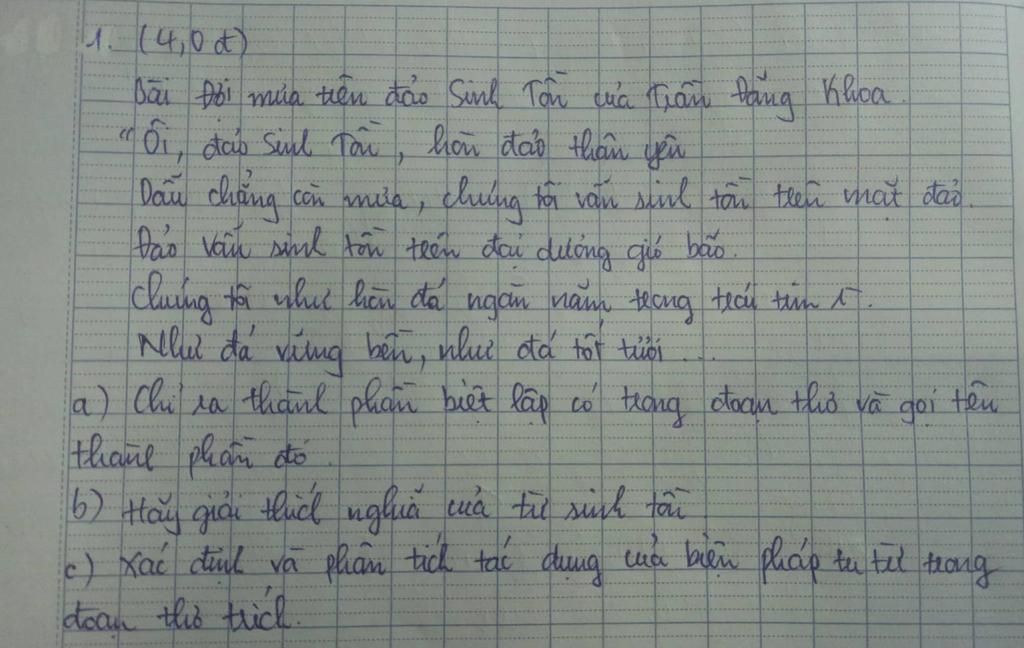 1. (4,0 đ)
Bài Đợi mưa trên đảo Sinh Tồn của Trần Đăng Khoa.
"Ôi, đảo Sinh Tồn, hòn đảo thân yên
Dẫu chẳng còn mưa, chúng tôi vẫn sinh tồn trên mặt đảo.
Đảo vẫn sinh tồn trên đại dương gió bão.
Chúng tôi như hòn đá ngàn năm trong trái tim
Như đá vững bền, như đá tốt tươi...
a) Chỉ ra thành phần biệt lập có trong đoạn thơ và gọi tên
thành phần đó.
b) Hãy giải thích nghĩa của từ sinh tồn
c) Xác định và phân tích tác dụng của biện pháp tu từ trong
đoạn thơ trích.